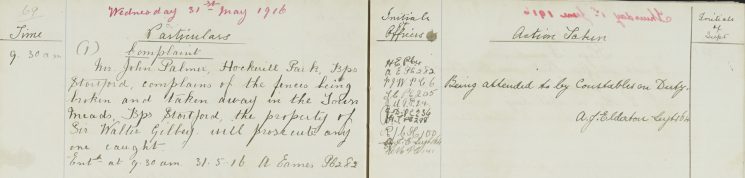 69
Wednesday 31st May 1916
Time
Particulars
9.30am
(1)
Complaint
Mr. John Palmer, Hockerill Park, Bps
Stortford, complains of the fences being
broken and taken away in the Town
Meads, Bps Stortford, the property of
Sir Walter Gilbey will prosecute any
one caught
Entd at 9.30am. 31.5.16 A Eames Ps 282
Initials
of
Officers
A E Ps 282
Action Taken
Being attended to by Constables on Duty.
A. J. Elderton
Initials
of
Supt
Thursday 1st June 1916